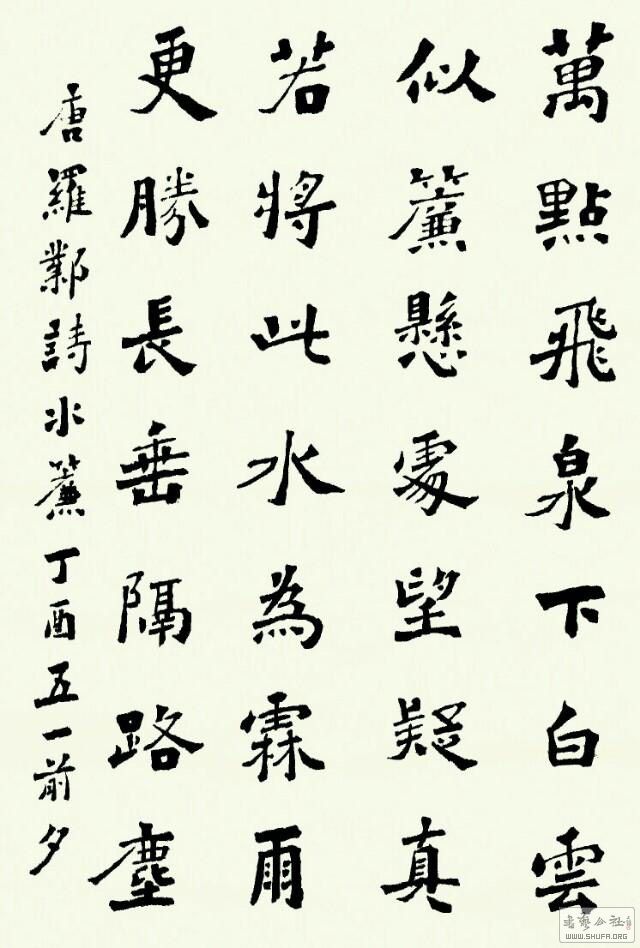 萬點飛泉下白雲
似簾懸處望疑真
若將此水為霖雨
更勝長垂隔路塵
唐羅鄴詩水簾丁酉五一前夕
書藝公社
WWW.SHUFA.ORG